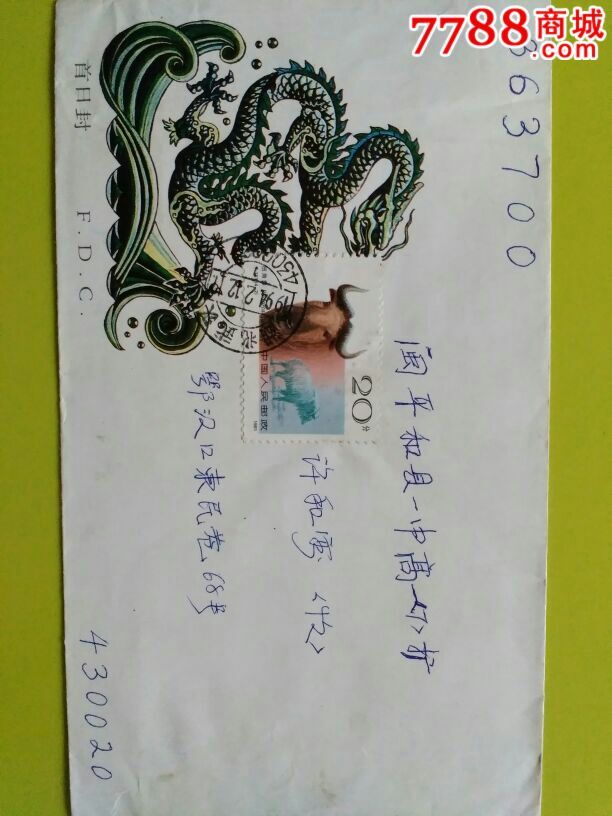 7788商城
.com
首日封
F.D.C.
363700
闽平和县一中高
许和
20分
中国人民邮政
鄂汉口东民巷68号
430020